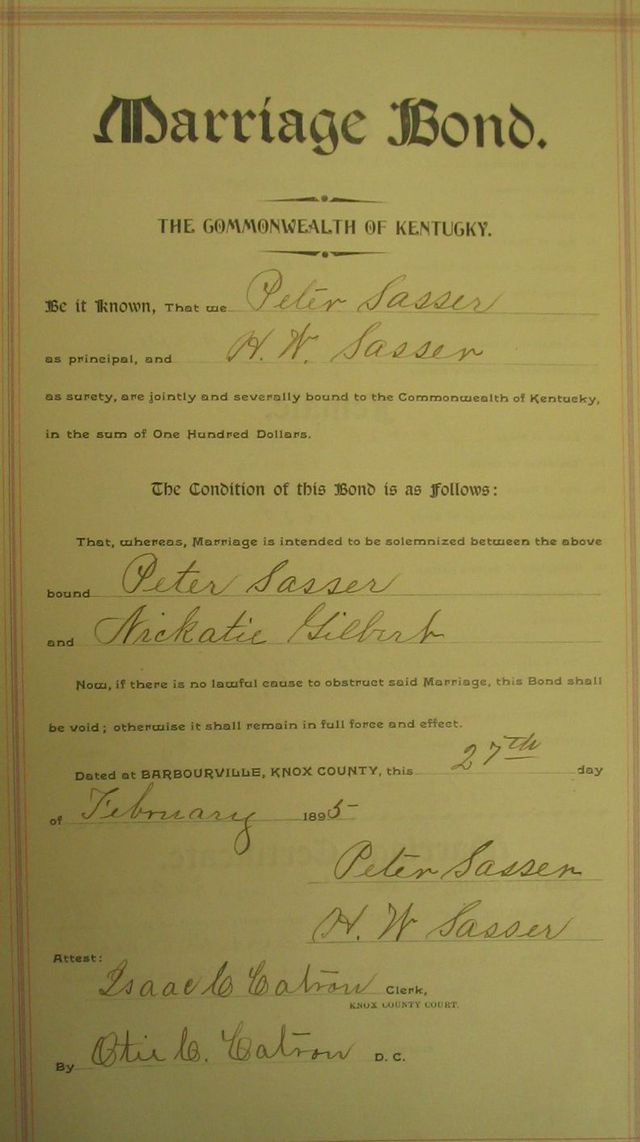 Marriage Bond.
THE COMMONWEALTH OF KENTUCKY.
Be it Known, That we Peter Sasser
as principal, and H. W. Sasser
as surety, are jointly and severally bound to the Commonwealth of Kentucky,
in the sum of One Hundred Dollars.
The Condition of this Bond is as Follows:
That, whereas, Marriage is intended to be solemnized between the above
bound Peter Sasser
and Nickatie Gilbert
Now, if there is no lawful cause to obstruct said Marriage, this Bond shall
be void; otherwise it shall remain in full force and effect.
Dated at BARBOURVILLE, KNOX COUNTY, this 27th day
of February 1895
Peter Sasser
H. W Sasser
Attest:
Isaac C Catron Clerk,
KNOX COUNTY COURT.
By Otie C. Catron D. C.